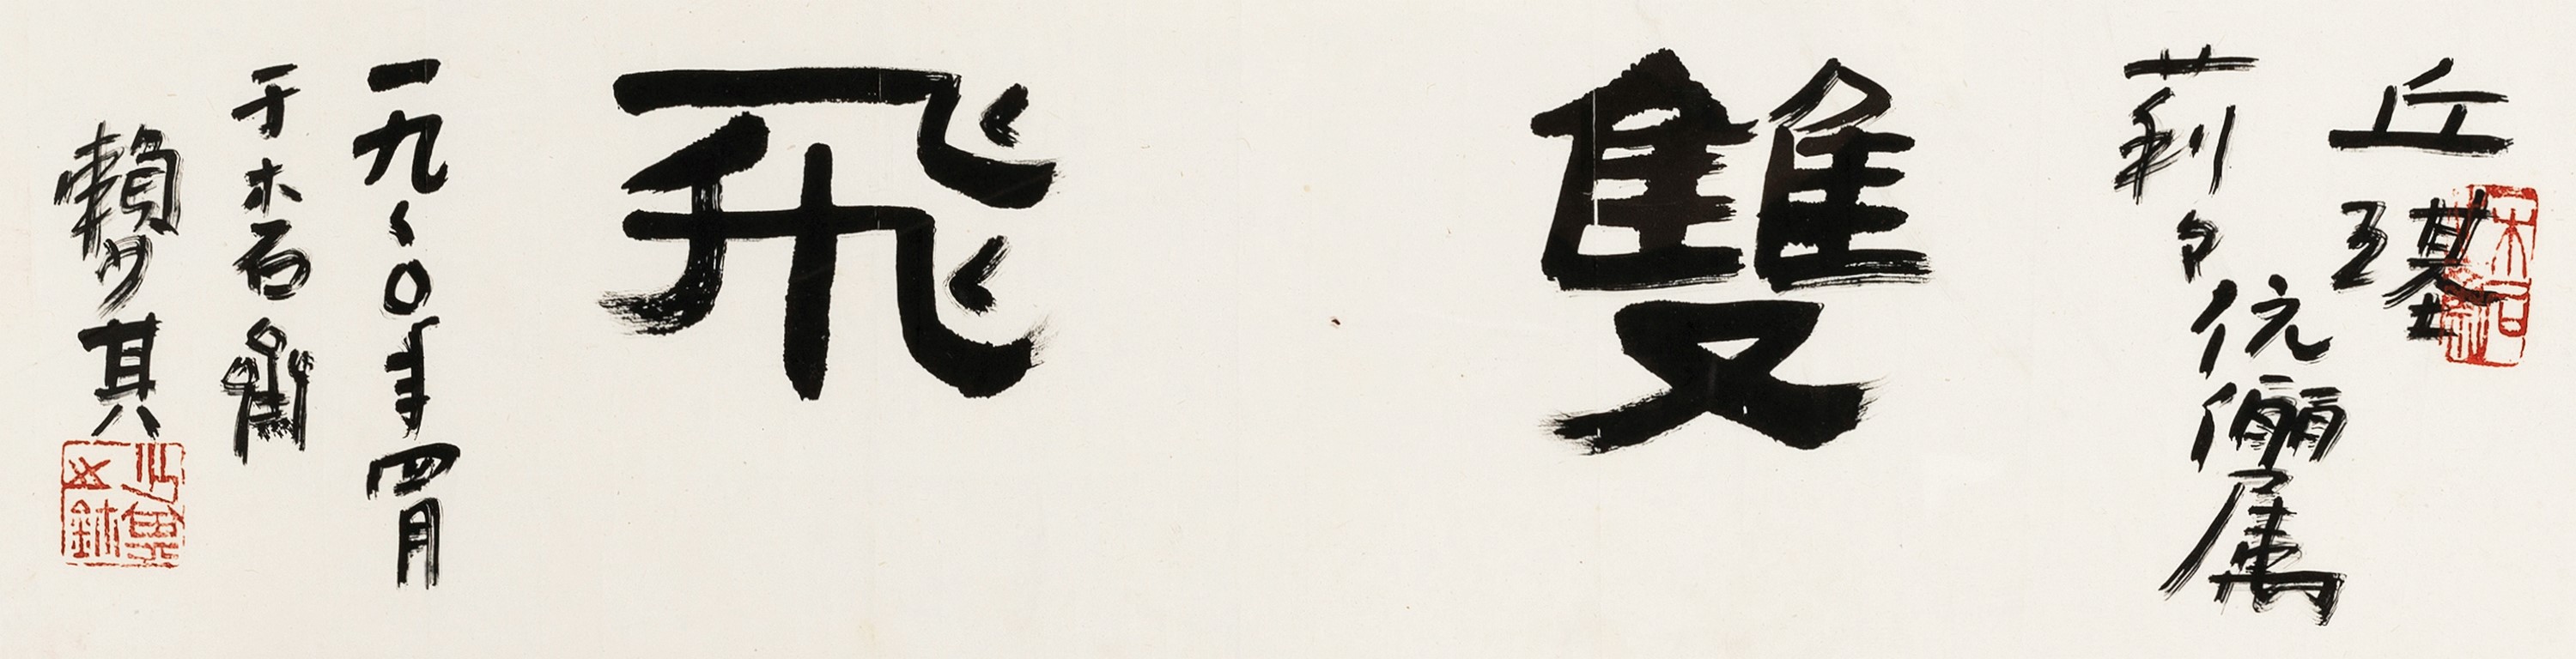 丘
莉々伉儷屬
雙飛
一九々〇年四月
于木石齋
賴少其
木石齋